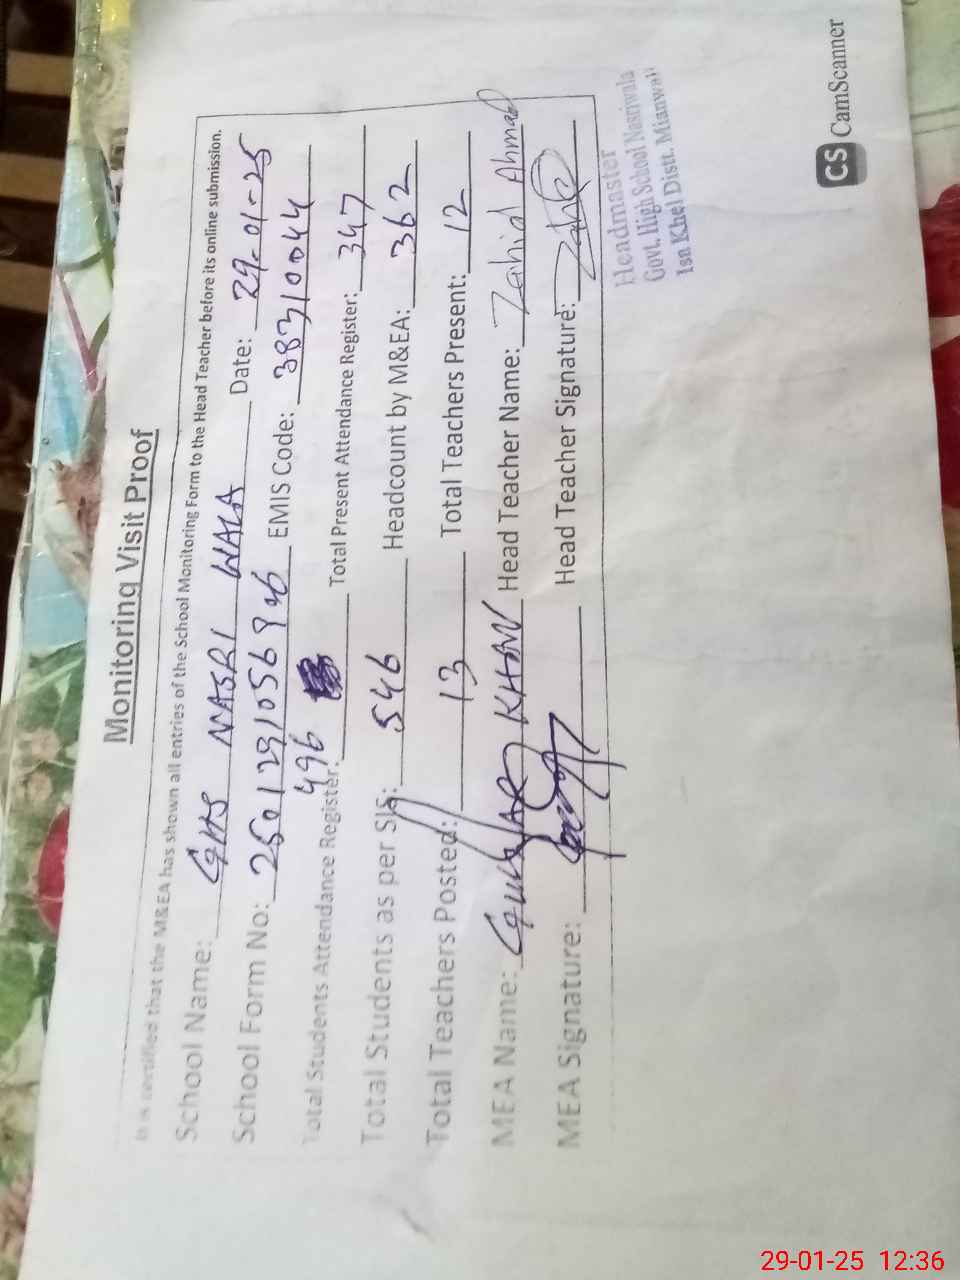 Monitoring Visit Proof
It is certified that the M&EA has shown all entries of the School Monitoring Form to the Head Teacher before its online submission.
School Name: GHS NASRI WALA Date: 29-01-25
School Form No: EMIS Code: 38310044
Total Students Attendance Register: 496 Total Present Attendance Register: 347
Total Students as per SIS: 546 Headcount by M&EA: 362
Total Teachers Posted: 13 Total Teachers Present: 12
MEA Name: KHAN Head Teacher Name: Zahid Ahmad
MEA Signature: Head Teacher Signature:
Headmaster
Govt. High School Nasriwala
Isa Khel Distt. Mianwali
CS CamScanner
29-01-25 12:36